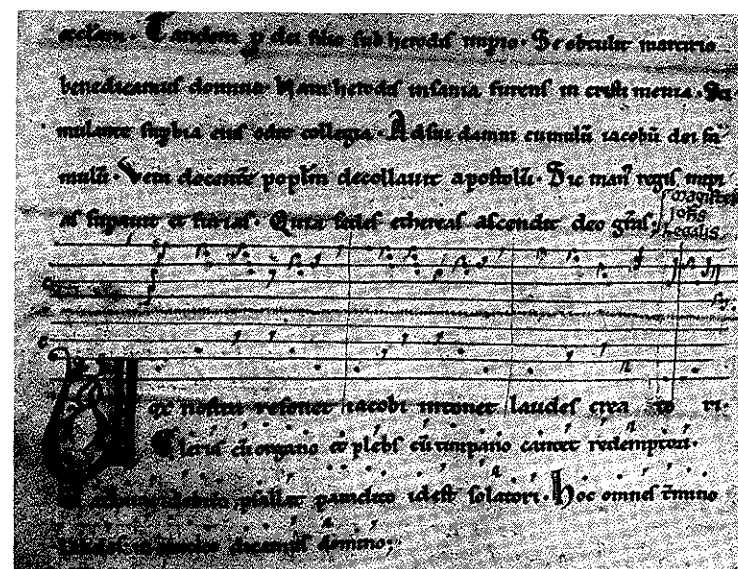 ecclam. Tandem p dei filio sub herodis impio. Se obtulit martirio
benedicamus domino. Nam herodis insania furens in cristi menia. Si
mulante supbia eius odit collegia. Ad sui damni cumulũ iacobũ dei fa
mulũ. Vera docentẽ poplm decollauit apostolũ. Sic man9 regis impi
as supauit et furias. Qui ta sedes ethereas ascendit deo gras.
magister
iohs
legalis
Vox nostra resonet iacobi intonet laudes crea to ri.
Clerus cũ organo et plebs cũ timpano cantet redemptori.
psallat paraclito id est solatori. Hoc omnes
domino;